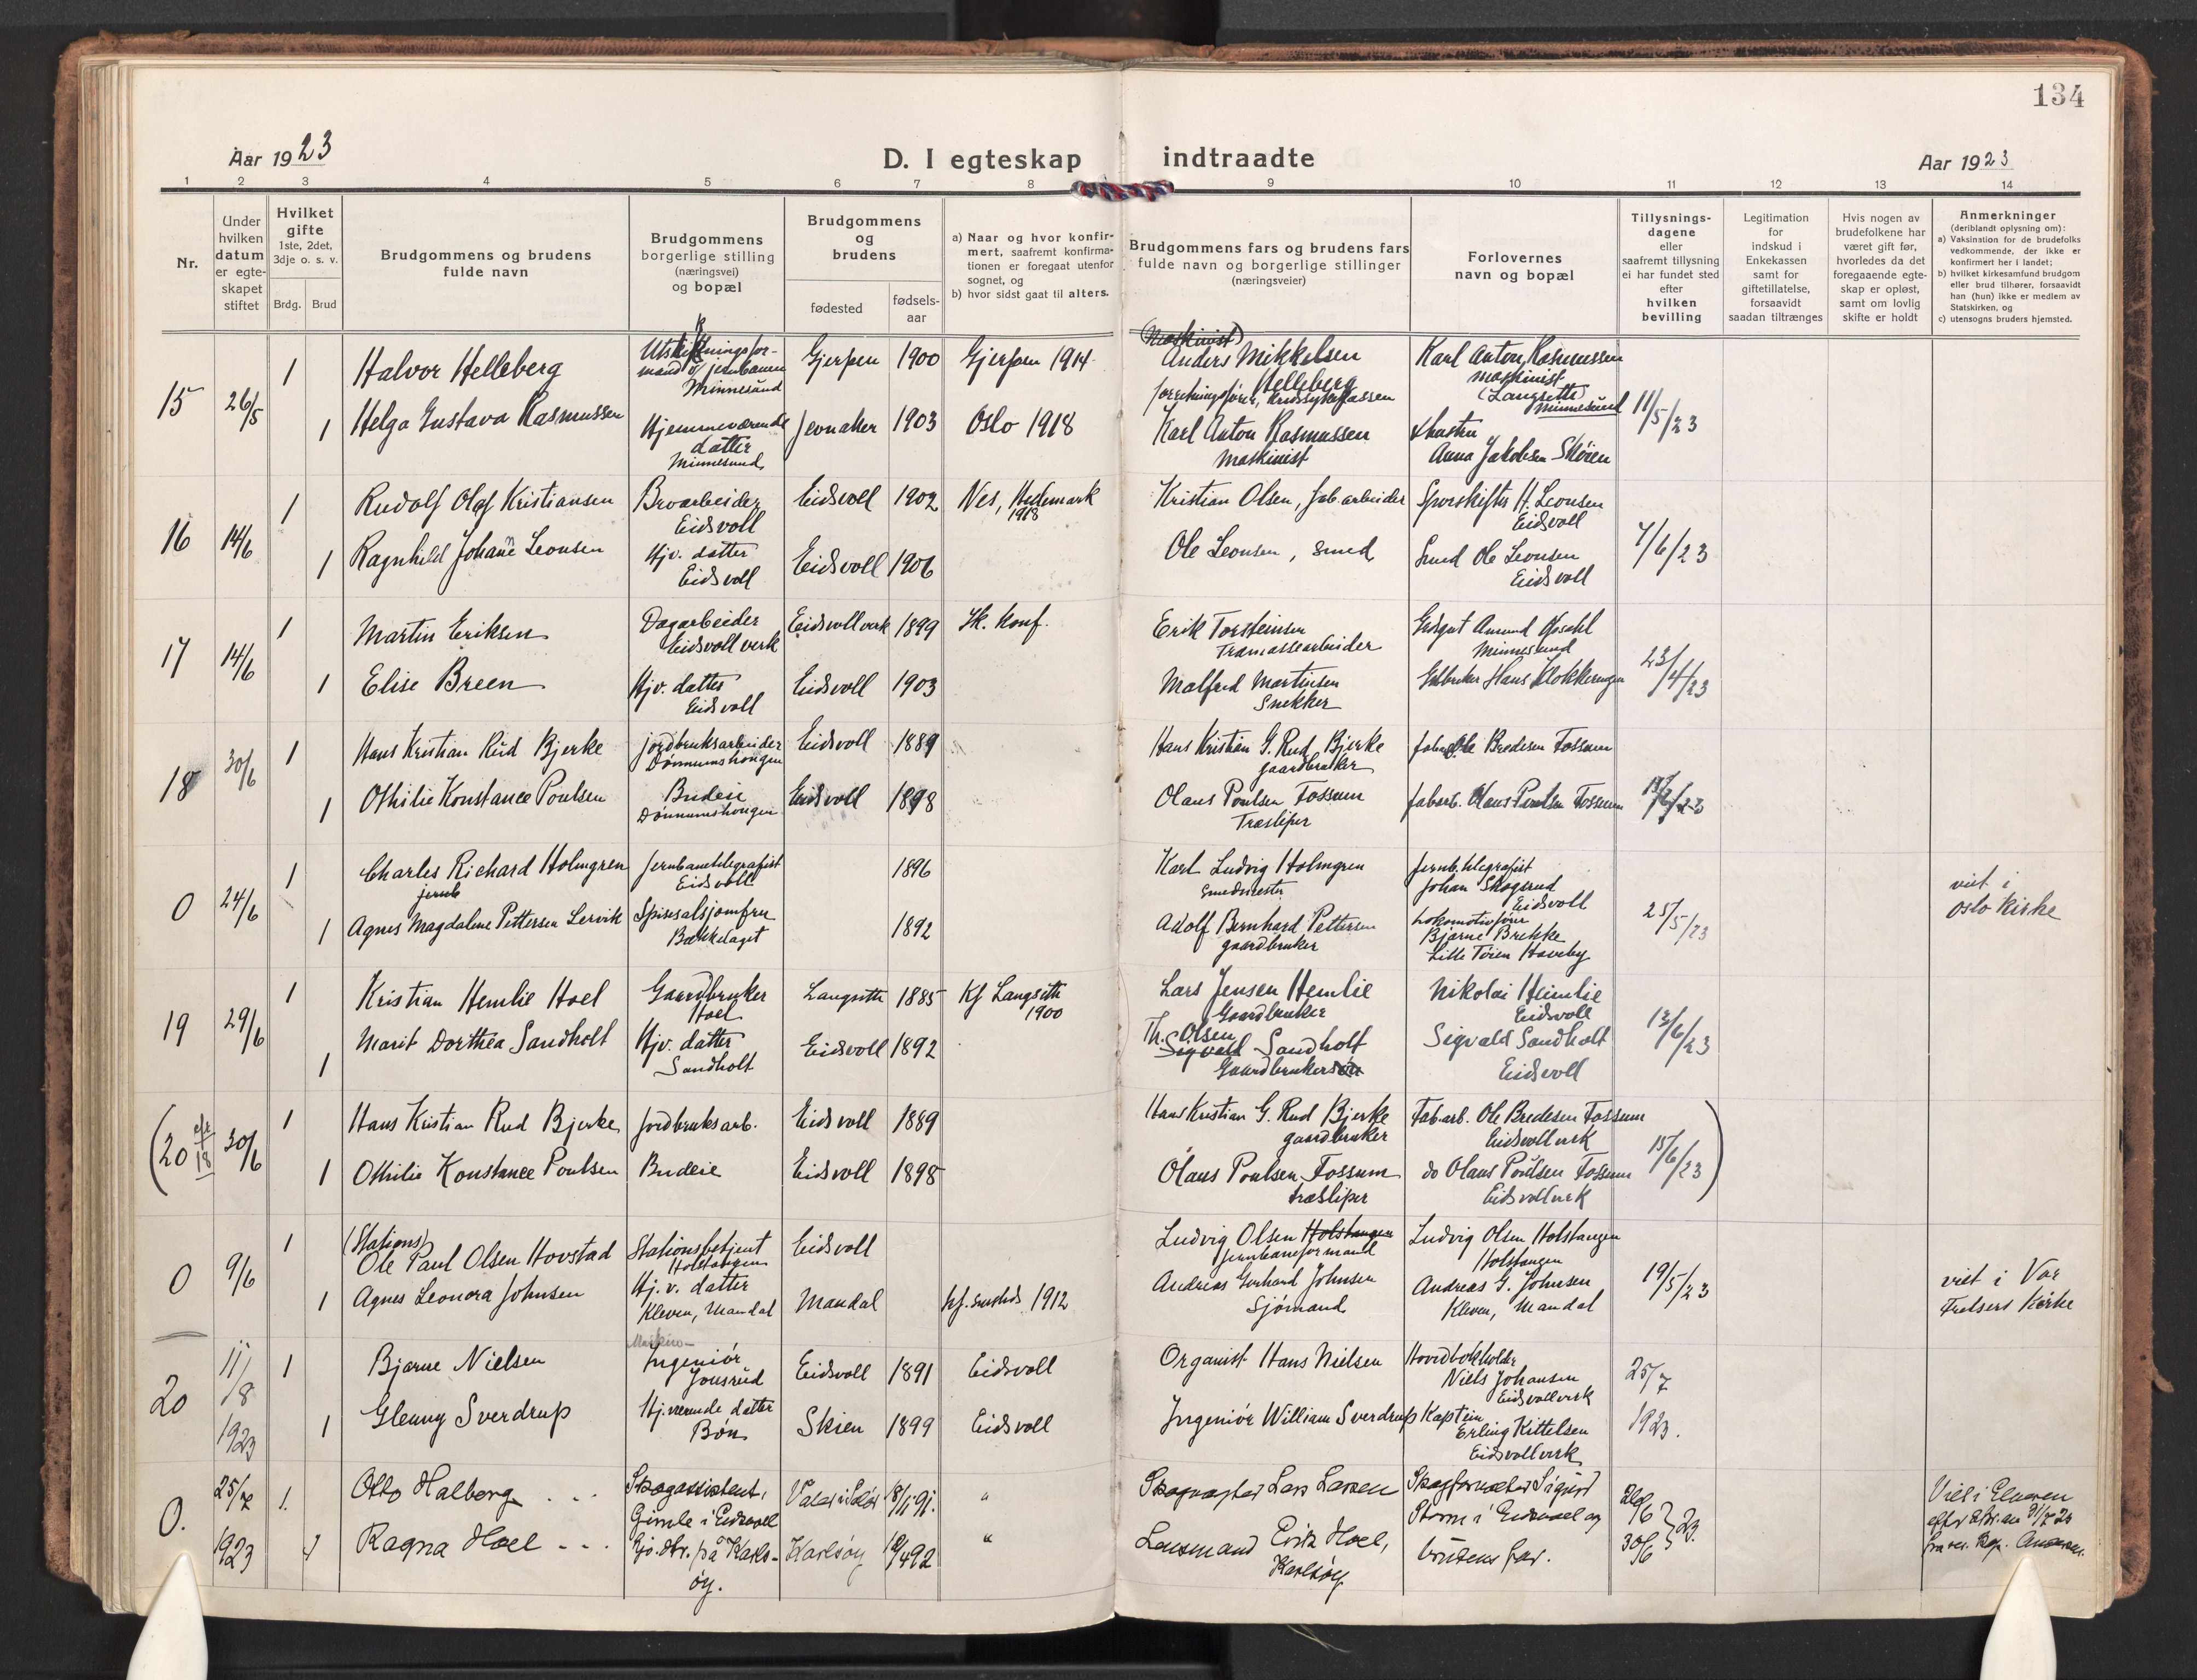 134
Aar 1923
D. I egteskap indtraadte
Aar 1923
1 2 3 4 5 6 7 8 9 10 11 12 13 14
Nr.
Under
hvilken
datum
er egte-
skapet
stiftet
Hvilket
gifte
1ste, 2det,
3dje o. s. v.
Brdg. Brud
Brudgommens og brudens
fulde navn
Brudgommens
borgerlige stilling
(næringsvei)
og bopæl
Brudgommens
og
brudens
fødested
fødsels-
aar
a) Naar og hvor konfir-
mert, saafremt konfirma-
tionen er foregaat utenfor
sognet, og
b) hvor sidst gaat til alters.
Brudgommens fars og brudens fars
fulde navn og borgerlige stillinger
(næringsveier)
Forlovernes
navn og bopæl
Tillysnings-
dagene
eller
saafremt tillysning
ei har fundet sted
efter
hvilken
bevilling
Legitimation
for
indskud i
Enkekassen
samt for
giftetillatelse,
forsaavidt
saadan tiltrænges
Hvis nogen av
brudefolkene har
været gift før,
hvorledes da det
foregaaende egte-
skap er opløst,
samt om lovlig
skifte er holdt
Anmerkninger
(deriblandt oplysning om):
a) Vaksination for de brudefolks
vedkommende, der ikke er
konfirmert her i landet;
b) hvilket kirkesamfund brudgom
eller brud tilhører, forsaavidt
han (hun) ikke er medlem av
Statskirken, og
c) utensogns bruders hjemsted.
15
26/5
1
Halvor Helleberg
Minnesund
Gjerpen
1900
Gjerpen 1914
(Maskinist)
Anders Mikkelsen
Helleberg
Karl Anton Rasmussen
maskinist
(Langseth)
Minnesund
11/5/23
1
Helga Gustava Rasmussen
Hjemmeværende
datter
Minnesund
Jevnaker
1903
Oslo 1918
Karl Anton Rasmussen
Maskinist
Anna Jakobsen Skøien
16
14/6
1
Rudolf Olaf Kristiansen
Broarbeider
Eidsvoll
Eidsvoll
1902
Nes, Hedemark
1918
Kristian Olsen, fab.arbeider
Sporskifter H. Leonsen
Eidsvoll
7/6/23
1
Ragnhild Johanne Leonsen
Hjv. datter
Eidsvoll
Eidsvoll
1906
Ole Leonsen, smed
Smed Ole Leonsen
Eidsvoll
17
14/6
1
Martin Eriksen
Dagarbeider
Eidsvoll verk
Eidsvoll verk
1899
Ik. konf.
Erik Torsteinsen
Tramassearbeider
Minnesund
23/4/23
1
Elise Breen
Hjv. datter
Eidsvoll
Eidsvoll
1903
Malfred Martinsen
Snekker
18
30/6
1
Hans Kristian Rud Bjerke
jordbruksarbeider
Eidsvoll
1889
Hans Kristian G. Rud Bjerke
gaardbruker
Ole Bredesen Fossum
1
Othilie Konstance Poulsen
Budeie
Eidsvoll
1898
Olaus Poulsen Fossum
Træsliper
fabarb. Olaus Poulsen Fossum
0
24/6
1
Charles Richard Holmgren
Jernbanetelegrafist
Eidsvoll
1896
Karl Ludvig Holmgren
Smedmester
Jernb. telegrafist
Johan Skogsrud
Eidsvoll
25/5/23
viet i
Oslo kirke
1
Agnes Magdalene Pettersen Lervik
Spisesalsjomfru
Bækkelaget
1892
Adolf Bernhard Pettersen
gaardbruker
Lokomotivfører
Bjarne Brekke
19
29/6
1
Kristian Hemlie Hoel
Gaardbruker
Hoel
Langseth
1885
Kf Langseth
1900
Lars Jensen Hemlie
Gaardbruker
Nikolai Heimlie
Eidsvoll
13/6/23
1
Marit Dorthea Sandholt
Hjv. datter
Sandholt
Eidsvoll
1892
Th. Olsen
Sigvald Sandholt
Gaardbruker
Sigvald Sandholt
Eidsvoll
(20
18
30/6
1
Hans Kristian Rud Bjerke
Jordbruksarb.
Eidsvoll
1889
Hans Kristian G. Rud Bjerke
gaardbruker
Fab.arb. Ole Bredesen Fossum
Eidsvollverk
15/6/23)
1
Othilie Konstance Poulsen
Budeie
Eidsvoll
1898
Olaus Poulsen Fossum
træsliper
do Olaus Poulsen Fossum
Eidsvollverk
0
9/6
1
(Stations)
Ole Paul Olsen Hovstad
Stationsbetjent
Holstangen
Eidsvoll
Ludvig Olsen Holstangen
jernbaneformand
Ludvig Olsen Holstangen
Holstangen
19/5/23
viet i Vor
Frelsers Kirke
1
Agnes Leonora Johnsen
Hj. v. datter
Kleven, Mandal
Mandal
1912
Andreas Gerhard Johnsen
Sjømand
Andreas G. Johnsen
Kleven, Mandal
20
11/8
1923
1
Bjarne Nielsen
Maskin-
Ingeniør
Jonsrud
Eidsvoll
1891
Eidsvoll
Organist Hans Nielsen
Hovedbokholder
Niels Johansen
Eidsvollverk
25/7
1923.
1
Glenny Sverdrup
Hj. værende datter
Bøn
Skien
1899
Eidsvoll
Ingeniør William Sverdrup
Kaptein
Erling Kittelsen
Eidsvollverk
0.
25/7
1923
1.
Otto Halberg
Skogassistent,
Gimle i Eidsvoll
Våler i Solør
8/1 91.
"
Skogvogter Lars Larsen
Skogforvalter Sigurd
Storm i Eidsvoll og
30/6
23.
Viet i Elverum
1
Ragna Hoel
på Karls-
øy.
Karlsøy
"
Lensmand Hoel,
Karlsøy
brudens far.